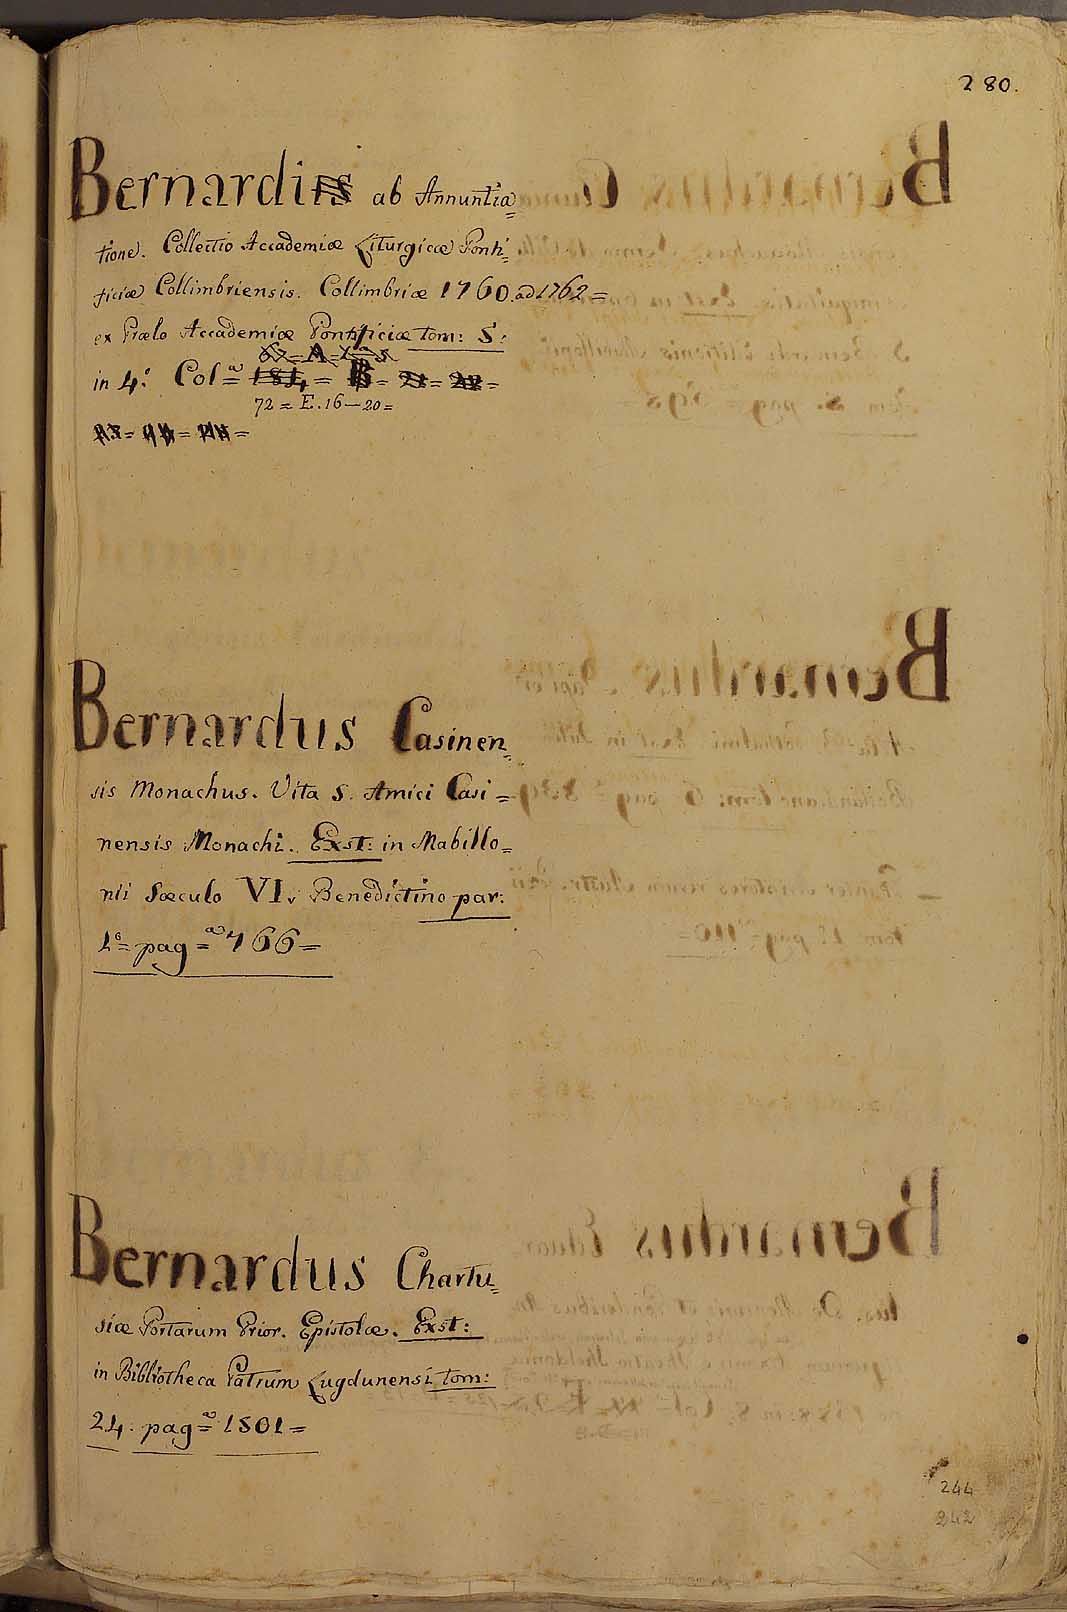 280.
Bernardus ab Annuntia=
tione. Collectio Accademiæ Liturgicæ Ponti=
ficiæ Collimbriensis. Collimbriæ 1760. ad 1762=
ex Prælo Accademiæ Pontificiæ tom: 5:
in 4.º Col=ª
72 = E. 16—20=
Bernardus Casinen=
sis Monachus. Vita S. Amici Casi=
nensis Monachi. Exst: in Mabillo=
nii Sæculo VI. Benedictino par:
1ª= pag=ª 466=
Bernardus Chartu=
siæ Portarum Prior. Epistolæ. Exst:
in Bibliotheca Patrum Lugdunensi tom:
24. pag=ª 1501=
244
242